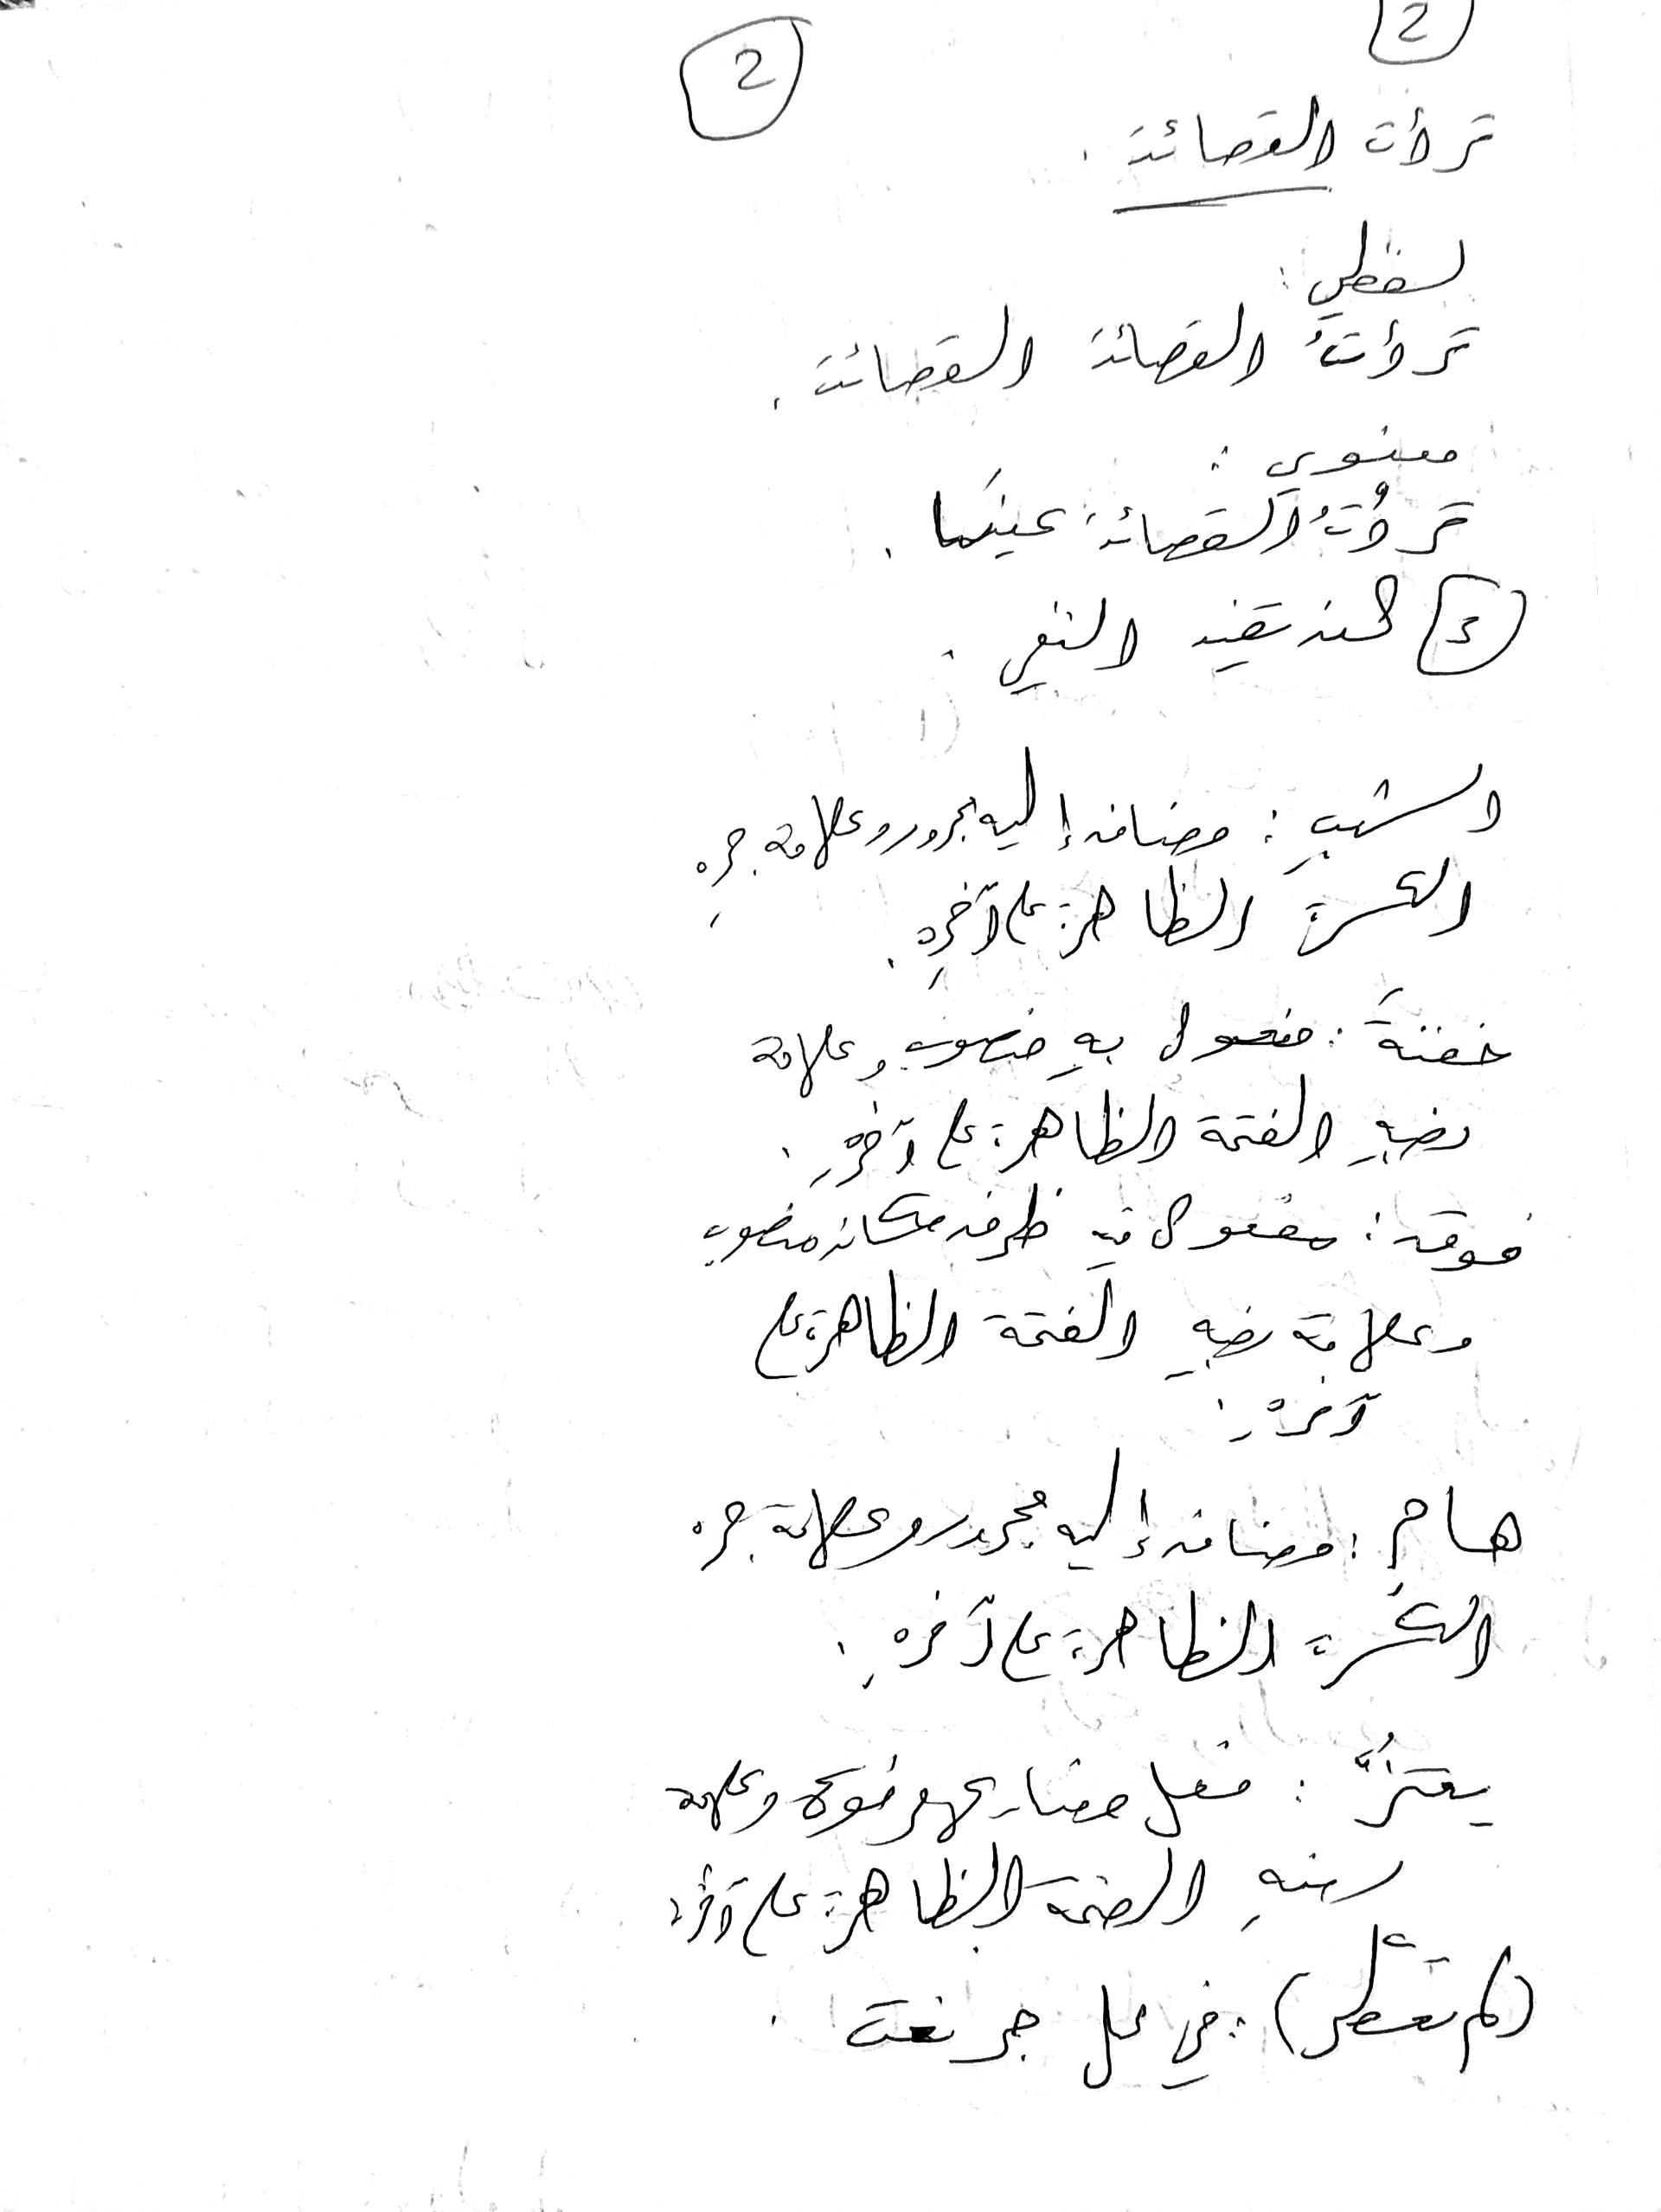 2
2
قرأت القصائد .
لفظي :
قرأتُ القصائد القصائد .
معنوي :
قرأتُ القصائد عينَها .
3 لام تفيد النفي .
الشهبِ : مضاف إليه مجرور وعلامة جرهِ
الكسرة الظاهرة على آخرهِ .
خفنةَ : مفعول بهِ منصوب وعلامة
نصبهِ الفتحة الظاهرة على آخرهِ .
فوقَ : مفعول فيهِ ظرف مكان منصوب
وعلامة نصبهِ الفتحة الظاهرة على
آخرهِ .
هامِ : مضاف إليه مجرور وعلامة جره
الكسرة الظاهرة على آخرهِ .
يعتزُّ : فعل مضارع مرفوع وعلامة
رفعهِ الضمة الظاهرة على آخره
(لم تعطَ) : في محل جر نعت .